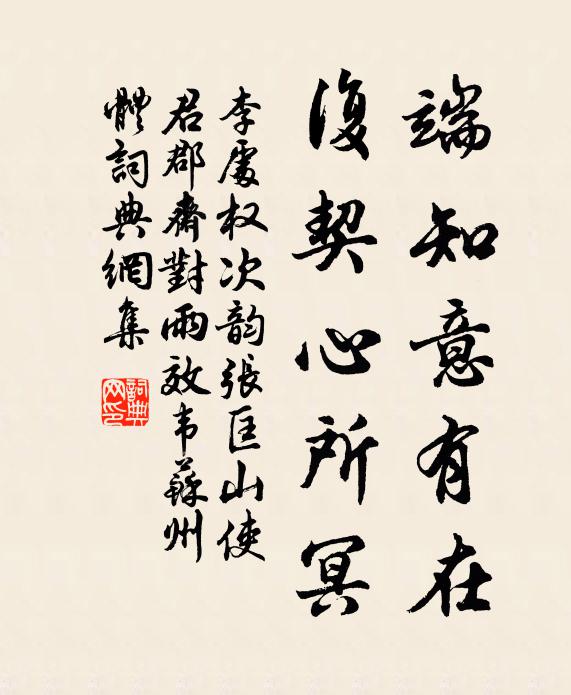 端知意有在
復契心所冥
李處权次韵張匡山使
君郡齋對雨效韦蘇州
體詞典網集
詞典网印